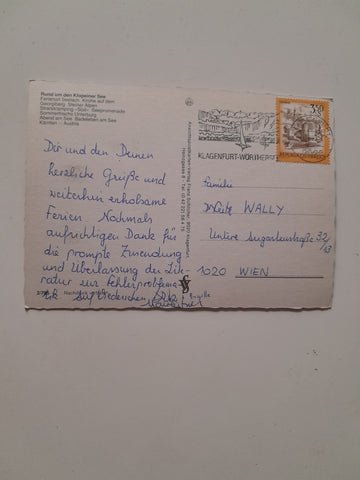 Rund um den Klopeiner See
Ferienort Seelach, Kirche auf dem
Georgiberg, Steiner Alpen
Strandcamping »Süd«, Seepromenade
Sommerfrische Unterburg
Abend am See, Badeleben am See
Kärnten — Austria
Dir und den Deinen
herzliche Grüße und
weiterhin erholsame
Ferien. Nochmals
aufrichtigen Dank für
die prompte Zusendung
und Überlassung der Lite-
ratur zur
Auf Wiedersehen
Ansichtskartenverlag Franz Schilcher, 9020 Klagenfurt
KLAGENFURT-WÖRTHERSEE
REPUBLIK ÖSTERREICH
Familie
WALLY
Untere Augartenstraße 32/
13
1020 WIEN